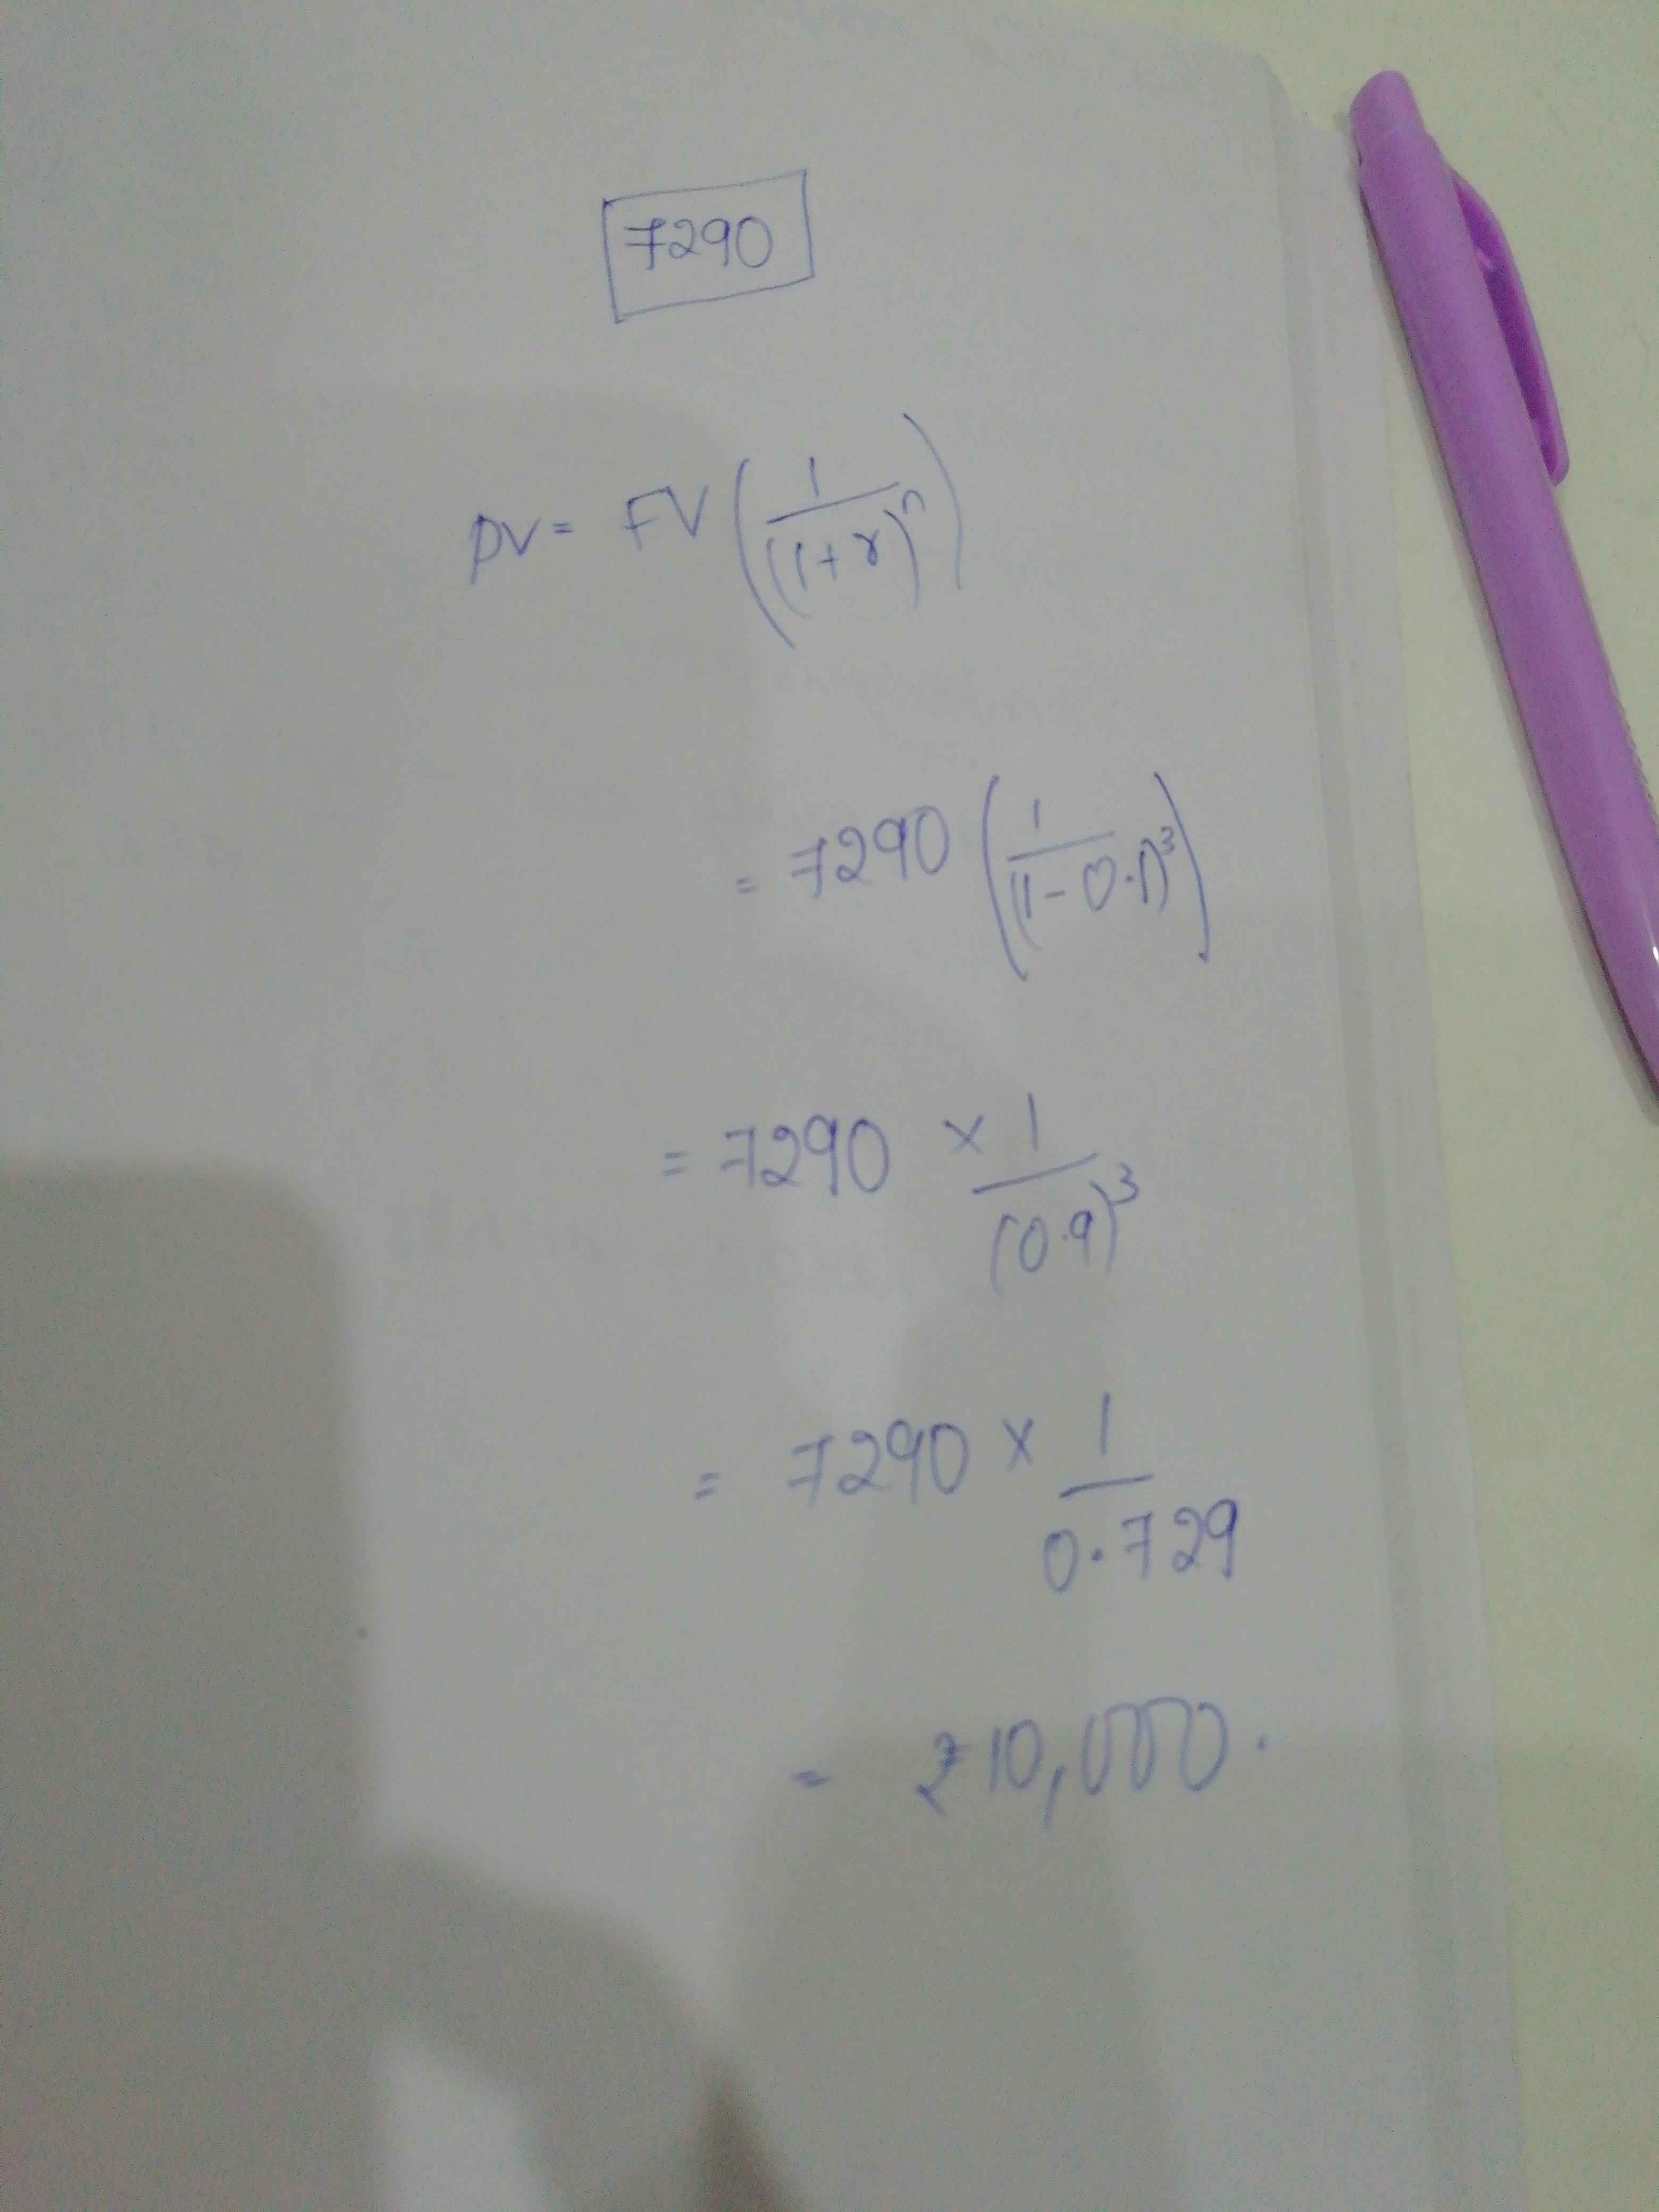 7290
PV = FV (1/(1+r)^n)
= 7290 (1/(1-0.1)^3)
= 7290 × 1/(0.9)^3
= 7290 × 1/0.729
= ₹10,000.